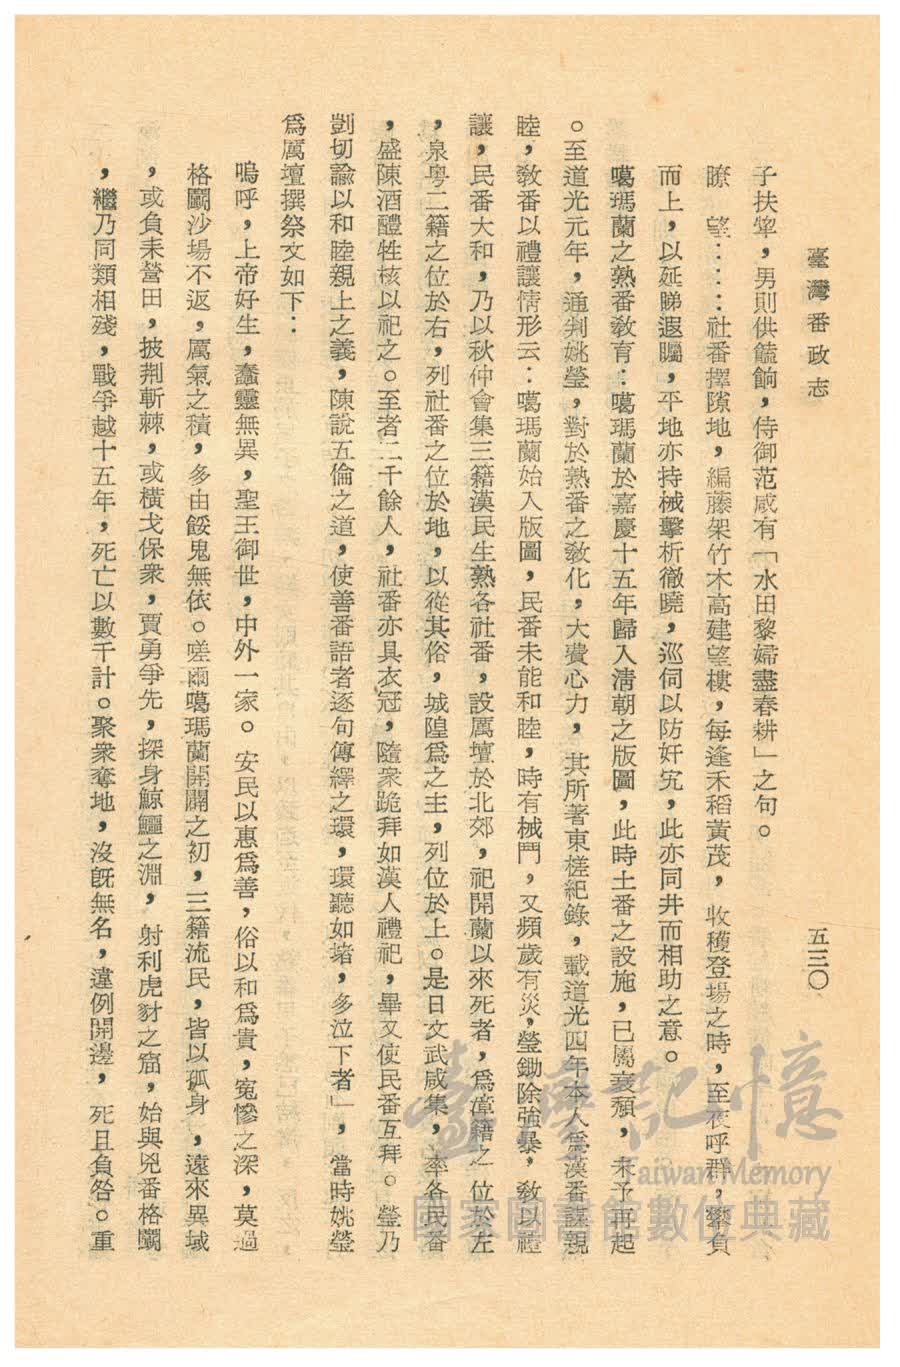 臺灣番政志
五三〇
子扶犂，男則供饁餉，侍御范咸有「水田黎婦盡春耕」之句。
瞭　望：：：社番擇隙地，編藤架竹木高建望樓，每逢禾稻黃茂，收穫登場之時，至夜呼群，攀負
而上，以延睇遐矚，平地亦持械擊柝徹曉，巡伺以防奸宄，此亦同井而相助之意。
噶瑪蘭之熟番敎育：噶瑪蘭於嘉慶十五年歸入淸朝之版圖，此時土番之設施，已屬衰頽，未予再起
。至道光元年，通判姚瑩，對於熟番之敎化，大費心力，其所著東槎紀錄，載道光四年本人爲漢番謀親
睦，敎番以禮讓情形云：噶瑪蘭始入版圖，民番未能和睦，時有械鬥，又頻歲有災，瑩鋤除強暴，敎以禮
讓，民番大和，乃以秋仲會集三籍漢民生熟各社番，設厲壇於北郊，祀開蘭以來死者，爲漳籍之位於左
，泉粤二籍之位於右，列社番之位於地，以從其俗，城隍爲之主，列位於上。是日文武咸集，率各民番
，盛陳酒醴牲核以祀之。至者二千餘人，社番亦具衣冠，隨衆跪拜如漢人禮祀，畢又使民番互拜。瑩乃
剴切諭以和睦親上之義，陳說五倫之道，使善番語者逐句傳繹之環，環聽如堵，多泣下者」，當時姚瑩
爲厲壇撰祭文如下：
嗚呼，上帝好生，蠢靈無異，聖王御世，中外一家。安民以惠爲善，俗以和爲貴，寃慘之深，莫過
格鬭沙場不返，厲氣之積，多由餒鬼無依。嗟爾噶瑪蘭開闢之初，三籍流民，皆以孤身，遠來異域
，或負耒營田，披荆斬棘，或橫戈保衆，賈勇爭先，探身鯨鱷之淵，射利虎豺之窟，始與兇番格鬭
，繼乃同類相殘，戰爭越十五年，死亡以數千計。聚衆奪地，沒旣無名，違例開邊，死且負咎。重
臺灣記憶
Taiwan Memory
國家圖書館數位典藏